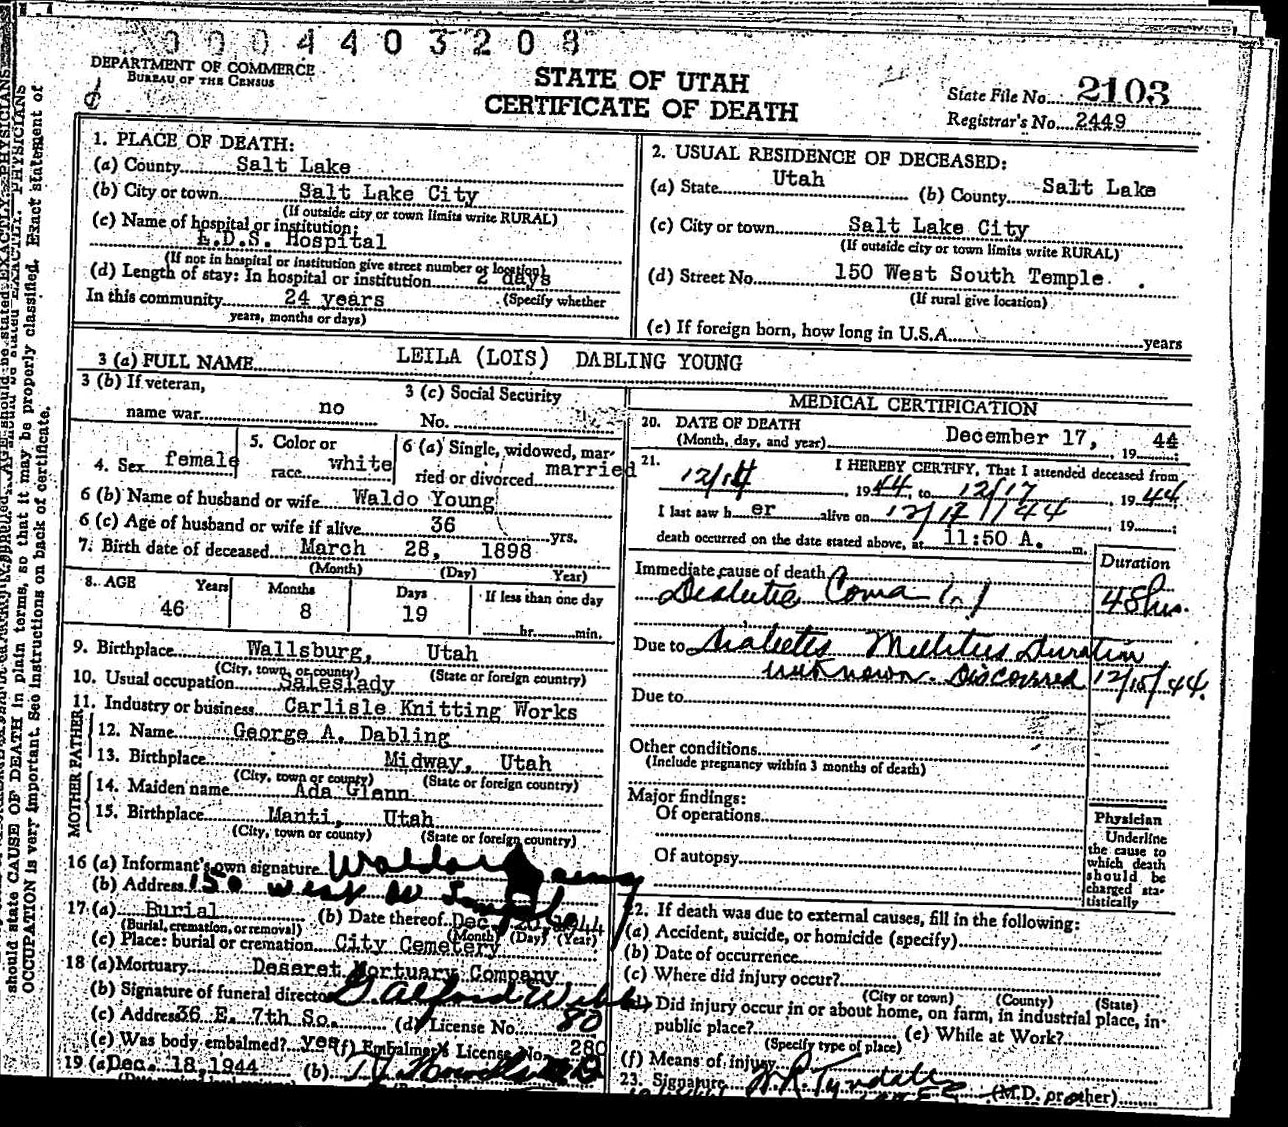 0 0 0 4 4 0 3 2 0 8
DEPARTMENT OF COMMERCE
BUREAU OF THE CENSUS
STATE OF UTAH
CERTIFICATE OF DEATH
State File No. 2103
Registrar's No. 2449
1. PLACE OF DEATH:
(a) County Salt Lake
(b) City or town Salt Lake City
(If outside city or town limits write RURAL)
(c) Name of hospital or institution:
L.D.S. Hospital
(If not in hospital or institution give street number or location)
(d) Length of stay: In hospital or institution 2 days
In this community 24 years (Specify whether
years, months or days)
2. USUAL RESIDENCE OF DECEASED:
(a) State Utah (b) County Salt Lake
(c) City or town Salt Lake City
(If outside city or town limits write RURAL)
(d) Street No. 150 West South Temple
(If rural give location)
(e) If foreign born, how long in U.S.A. years
3 (a) FULL NAME LEILA (LOIS) DABLING YOUNG
3 (b) If veteran,
name war no
3 (c) Social Security
No.
4. Sex female
5. Color or
race white
6 (a) Single, widowed, mar-
ried or divorced married
6 (b) Name of husband or wife Waldo Young
6 (c) Age of husband or wife if alive 36 yrs.
7. Birth date of deceased March 28, 1898
(Month) (Day) Year)
8. AGE Years Months Days If less than one day
46 8 19 hr. min.
9. Birthplace Wallsburg, Utah
(City, town, or county) (State or foreign country)
10. Usual occupation Saleslady
11. Industry or business Carlisle Knitting Works
FATHER
12. Name George A. Dabling
13. Birthplace Midway, Utah
(City, town or county) (State or foreign country)
MOTHER
14. Maiden name Ada Glenn
15. Birthplace Manti, Utah
(City, town or county) (State or foreign country)
16 (a) Informant's own signature Waldo Young
(b) Address 150 West
17. (a) Burial (b) Date thereof Dec. 20, 1944
(Burial, cremation, or removal) (Month) (Day) (Year)
(c) Place: burial or cremation City Cemetery
18 (a) Mortuary Deseret Mortuary Company
(b) Signature of funeral director
(c) Address 36 E. 7th So. (d) License No. 80
(e) Was body embalmed? yes (f) Embalmer's License No. 280
19 (a) Dec. 18, 1944 (b)
MEDICAL CERTIFICATION
20. DATE OF DEATH
(Month, day, and year) December 17, 19 44
21. I HEREBY CERTIFY, That I attended deceased from
12/14, 19 44, to 12/17, 19 44
I last saw h er alive on 12/17/44, 19
death occurred on the date stated above, at 11:50 A. m.
Duration
Immediate cause of death
Diabetic Coma 48 hrs.
Due to Diabetes Mellitus Duration
unknown. Discovered 12/15/44.
Due to
Other conditions
(Include pregnancy within 3 months of death)
Major findings:
Of operations
Of autopsy
Physician
Underline
the cause to
which death
should be
charged sta-
tistically
22. If death was due to external causes, fill in the following:
(a) Accident, suicide, or homicide (specify)
(b) Date of occurrence
(c) Where did injury occur?
(City or town) (County) (State)
(d) Did injury occur in or about home, on farm, in industrial place, in
public place? (e) While at Work?
(Specify type of place)
(f) Means of injury
23. Signature W.R. Tyndale (M.D. or other)
should state CAUSE OF DEATH in plain terms, so that it may be properly classified. Exact statement of
OCCUPATION is very important. See instructions on back of certificate.